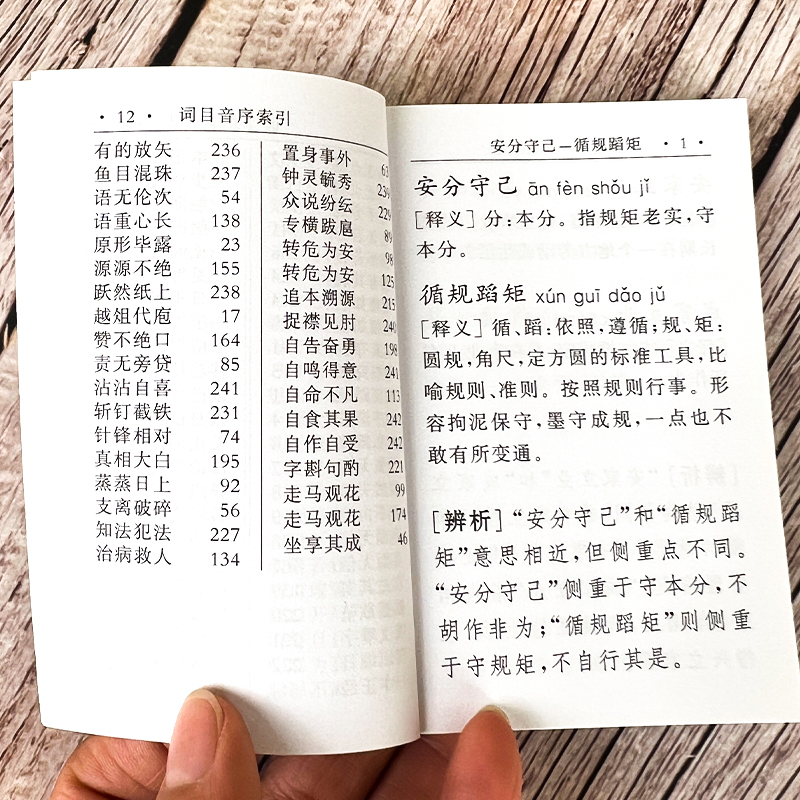 · 12 · 词目音序索引
有的放矢 236
鱼目混珠 237
语无伦次 54
语重心长 138
原形毕露 23
源源不绝 155
跃然纸上 238
越俎代庖 17
赞不绝口 164
责无旁贷 85
沾沾自喜 241
斩钉截铁 231
针锋相对 74
真相大白 195
蒸蒸日上 92
支离破碎 56
知法犯法 227
治病救人 134
置身事外
钟灵毓秀 239
众说纷纭 229
专横跋扈 89
转危为安 98
转危为安 125
追本溯源 215
捉襟见肘 240
自告奋勇 198
自鸣得意 241
自命不凡 113
自食其果 242
自作自受 242
字斟句酌 221
走马观花 99
走马观花 174
坐享其成 46
安分守己–循规蹈矩 · 1 ·
安分守己 ān fèn shǒu jǐ
[释义] 分:本分。指规矩老实,守
本分。
循规蹈矩 xún guī dǎo jǔ
[释义] 循、蹈:依照,遵循;规、矩:
圆规,角尺,定方圆的标准工具,比
喻规则、准则。按照规则行事。形
容拘泥保守,墨守成规,一点也不
敢有所变通。
[辨析] “安分守己”和“循规蹈
矩”意思相近,但侧重点不同。
“安分守己”侧重于守本分,不
胡作非为;“循规蹈矩”则侧重
于守规矩,不自行其是。